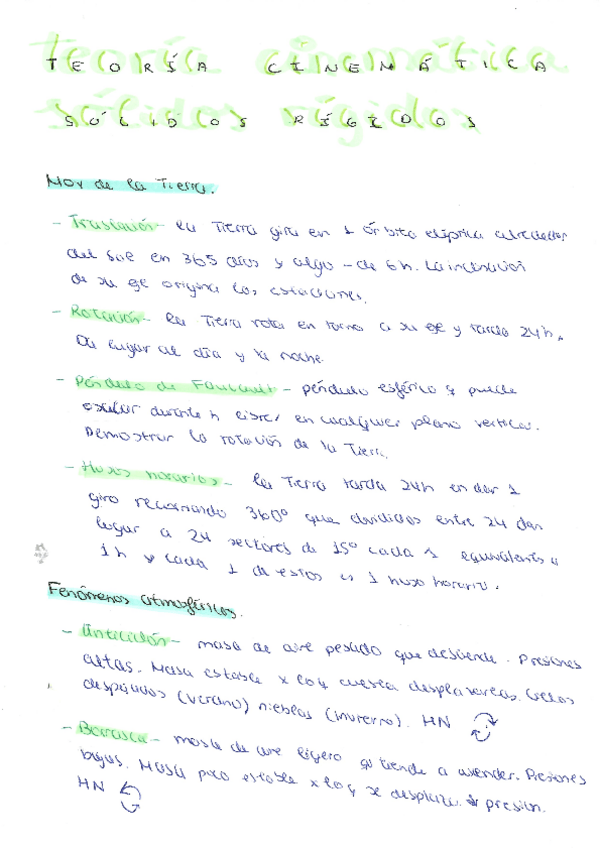 TEORÍA CINEMÁTICA
SÓLIDOS RÍGIDOS
Mov de la Tierra.
- Traslación - la Tierra gira en 1 órbita elíptica alrededor
del Sol en 365 días y algo - de 6h. La inclinación
de su eje origina las estaciones.
- Rotación - la Tierra rota en torno a su eje y tarda 24h.
Da lugar al día y la noche.
- Péndulo de Foucault - péndulo esférico q puede
oscilar durante h libres en cualquier plano vertical.
Demostrar la rotación de la Tierra.
- Husos horarios - la Tierra tarda 24h en dar 1
giro recorriendo 360º que divididos entre 24 dan
lugar a 24 sectores de 15º cada 1 equivalentes a
1h y cada 1 de estos es 1 huso horario.
Fenómenos atmosféricos.
- Anticiclón - masa de aire pesado que desciende. Presiones
altas. Masa estable x lo q cuesta desplazarlas. Cielos
despejados (verano) nieblas (invierno). HN
- Borrasca - masa de aire ligero q tiende a ascender. Presiones
bajas. Masa poco estable x lo q se desplaza. presión.
HN